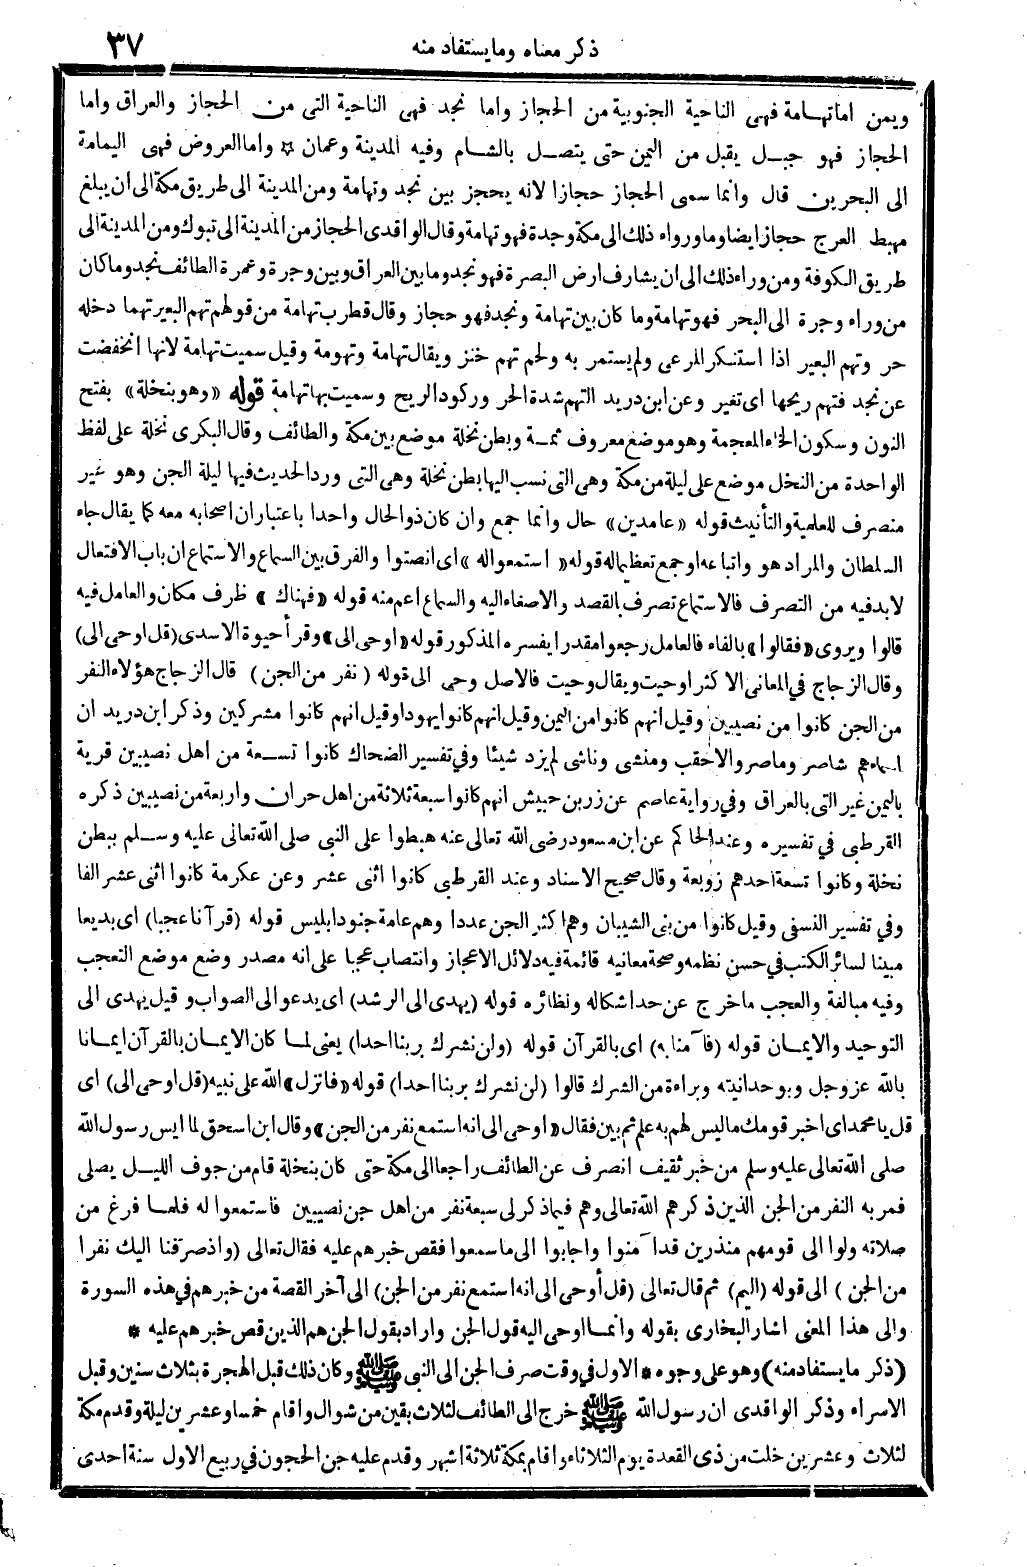 ذكر معناه ومايستفاد منه
٣٧
ويمن اماتهامة فهى الناحية الجنوبية من الحجاز واما نجد فهى الناحية التى من الحجاز والعراق واما
الحجاز فهو جبل يقبل من اليمن حتى يتصل بالشام وفيه المدينة وعمان ☆ واماالعروض فهى اليمامة
الى البحرين قال وانما سمى الحجاز حجازا لانه يحجز بين نجد وتهامة ومن المدينة الى طريق مكة الى ان يبلغ
مهبط العرج حجاز ايضا وما وراء ذلك الى مكة وجدة فهو تهامة وقال الواقدى الحجاز من المدينة الى تبوك ومن المدينة الى
طريق الكوفة ومن وراء ذلك الى ان يشارف ارض البصرة فهو نجد وما بين العراق وبين وجرة وعمرة الطائف نجد وما كان
من وراء وجرة الى البحر فهو تهامة وما كان بين تهامة ونجد فهو حجاز وقال قطرب تهامة من قولهم تهم البعير تهما دخله
حر وتهم البعير اذا استنكر المرعى ولم يستمر به ولحم تهم خنز ويقال تهامة وتهومة وقيل سميت تهامة لانها انخفضت
عن نجد فتهم ريحها اى تغير وعن ابن دريد التهم شدة الحر وركود الريح وسميت بها تهامة قوله «وهو بنخلة» بفتح
النون وسكون الخاء المعجمة وهو موضع معروف ثمة وبطن نخلة موضع بين مكة والطائف وقال البكرى نخلة على لفظ
الواحدة من النخل موضع على ليلة من مكة وهى التى نسب اليها بطن نخلة وهى التى ورد الحديث فيها ليلة الجن وهو غير
منصرف للعلمية والتأنيث قوله «عامدين» حال وانما جمع وان كان ذو الحال واحدا باعتبار ان اصحابه معه كما يقال جاء
السلطان والمراد هو واتباعه او جمع تعظيما له قوله «استمعوا له» اى انصتوا والفرق بين السماع والاستماع ان باب الافتعال
لابد فيه من التصرف فالاستماع تصرف بالقصد والاصغاء اليه والسماع اعم منه قوله «فهناك» ظرف مكان والعامل فيه
قالوا ويروى «فقالوا» بالفاء فالعامل رجعوا مقدرا يفسره المذكور قوله «اوحى الى» وقرأ حيوة الاسدى (قل اوحى الى)
وقال الزجاج فى المعانى الاكثر اوحيت ويقال وحيت فالاصل وحى الى قوله (نفر من الجن) قال الزجاج هؤلاء النفر
من الجن كانوا من نصيبين وقيل انهم كانوا من اليمن وقيل انهم كانوا يهودا وقيل انهم كانوا مشركين وذكر ابن دريد ان
اسماءهم شاصر وماصر والاحقب ومنشى وناشى لم يزد شيئا وفى تفسير الضحاك كانوا تسعة من اهل نصيبين قرية
باليمن غير التى بالعراق وفى رواية عاصم عن زر بن حبيش انهم كانوا سبعة ثلاثة من اهل حران واربعة من نصيبين ذكره
القرطبى فى تفسيره وعند الحاكم عن ابن مسعود رضى الله تعالى عنه هبطوا على النبى صلى الله تعالى عليه وسلم ببطن
نخلة وكانوا تسعة احدهم زوبعة وقال صحيح الاسناد وعند القرطبى كانوا اثنى عشر وعن عكرمة كانوا اثنى عشر الفا
وفى تفسير النسفى وقيل كانوا من بنى الشيبان وهم اكثر الجن عددا وهم عامة جنود ابليس قوله (قرآنا عجبا) اى بديعا
مبينا لسائر الكتب فى حسن نظمه وصحة معانيه قائمة فيه دلائل الاعجاز وانتصاب عجبا على انه مصدر وضع موضع التعجب
وفيه مبالغة والعجب ماخرج عن حد اشكاله ونظائره قوله (يهدى الى الرشد) اى يدعو الى الصواب وقيل يهدى الى
التوحيد والايمان قوله (فآمنا به) اى بالقرآن قوله (ولن نشرك بربنا احدا) يعنى لما كان الايمان بالقرآن ايمانا
بالله عز وجل وبوحدانيته وبراءة من الشرك قالوا (لن نشرك بربنا احدا) قوله «فانزل» الله على نبيه (قل اوحى الى) اى
قل يا محمد اى اخبر قومك ماليس لهم به علم ثم بين فقال «اوحى الى انه استمع نفر من الجن» وقال ابن اسحق لما ايس رسول الله
صلى الله تعالى عليه وسلم من خبر ثقيف انصرف عن الطائف راجعا الى مكة حتى كان بنخلة قام من جوف الليل يصلى
فمر به النفر من الجن الذين ذكرهم الله تعالى وهم فيما ذكر لى سبعة نفر من اهل جن نصيبين فاستمعوا له فلما فرغ من
صلاته ولوا الى قومهم منذرين قد آمنوا واجابوا الى ما سمعوا فقص خبرهم عليه فقال تعالى (واذ صرفنا اليك نفرا
من الجن) الى قوله (اليم) ثم قال تعالى (قل أوحى الى انه استمع نفر من الجن) الى آخر القصة من خبرهم فى هذه السورة
والى هذا المعنى اشار البخارى بقوله وانما اوحى اليه قول الجن واراد بقول الجن هم الذين قص خبرهم عليه *
(ذكر ما يستفاد منه) وهو على وجوه * الاول فى وقت صرف الجن الى النبى ﷺ وكان ذلك قبل الهجرة بثلاث سنين وقبل
الاسراء وذكر الواقدى ان رسول الله ﷺ خرج الى الطائف لثلاث بقين من شوال واقام خمسا وعشرين ليلة وقدم مكة
لثلاث وعشرين خلت من ذى القعدة يوم الثلاثاء واقام بمكة ثلاثة اشهر وقدم عليه جن الحجون فى ربيع الاول سنة احدى